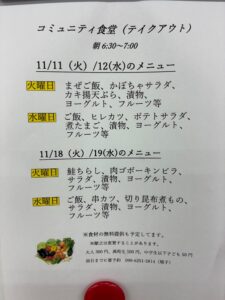 コミュニティ食堂（テイクアウト）
朝 6:30〜7:00
11/11（火）/12(水)のメニュー
火曜日 まぜご飯、かぼちゃサラダ、
カキ揚天ぷら、漬物、
ヨーグルト、フルーツ等
水曜日 ご飯、ヒレカツ、ポテトサラダ、
煮たまご、漬物、ヨーグルト、
フルーツ等
11/18（火）/19(水)のメニュー
火曜日 鮭ちらし、肉ゴボーキンピラ、
サラダ、漬物、ヨーグルト、
フルーツ等
水曜日 ご飯、串カツ、切り昆布煮もの、
サラダ、漬物、ヨーグルト、
フルーツ等
※食材の無料提供も予定してます。
※献立は変更することがあります。
大人300円、高校生100円、中学生以下子ども50円
前日までに要予約